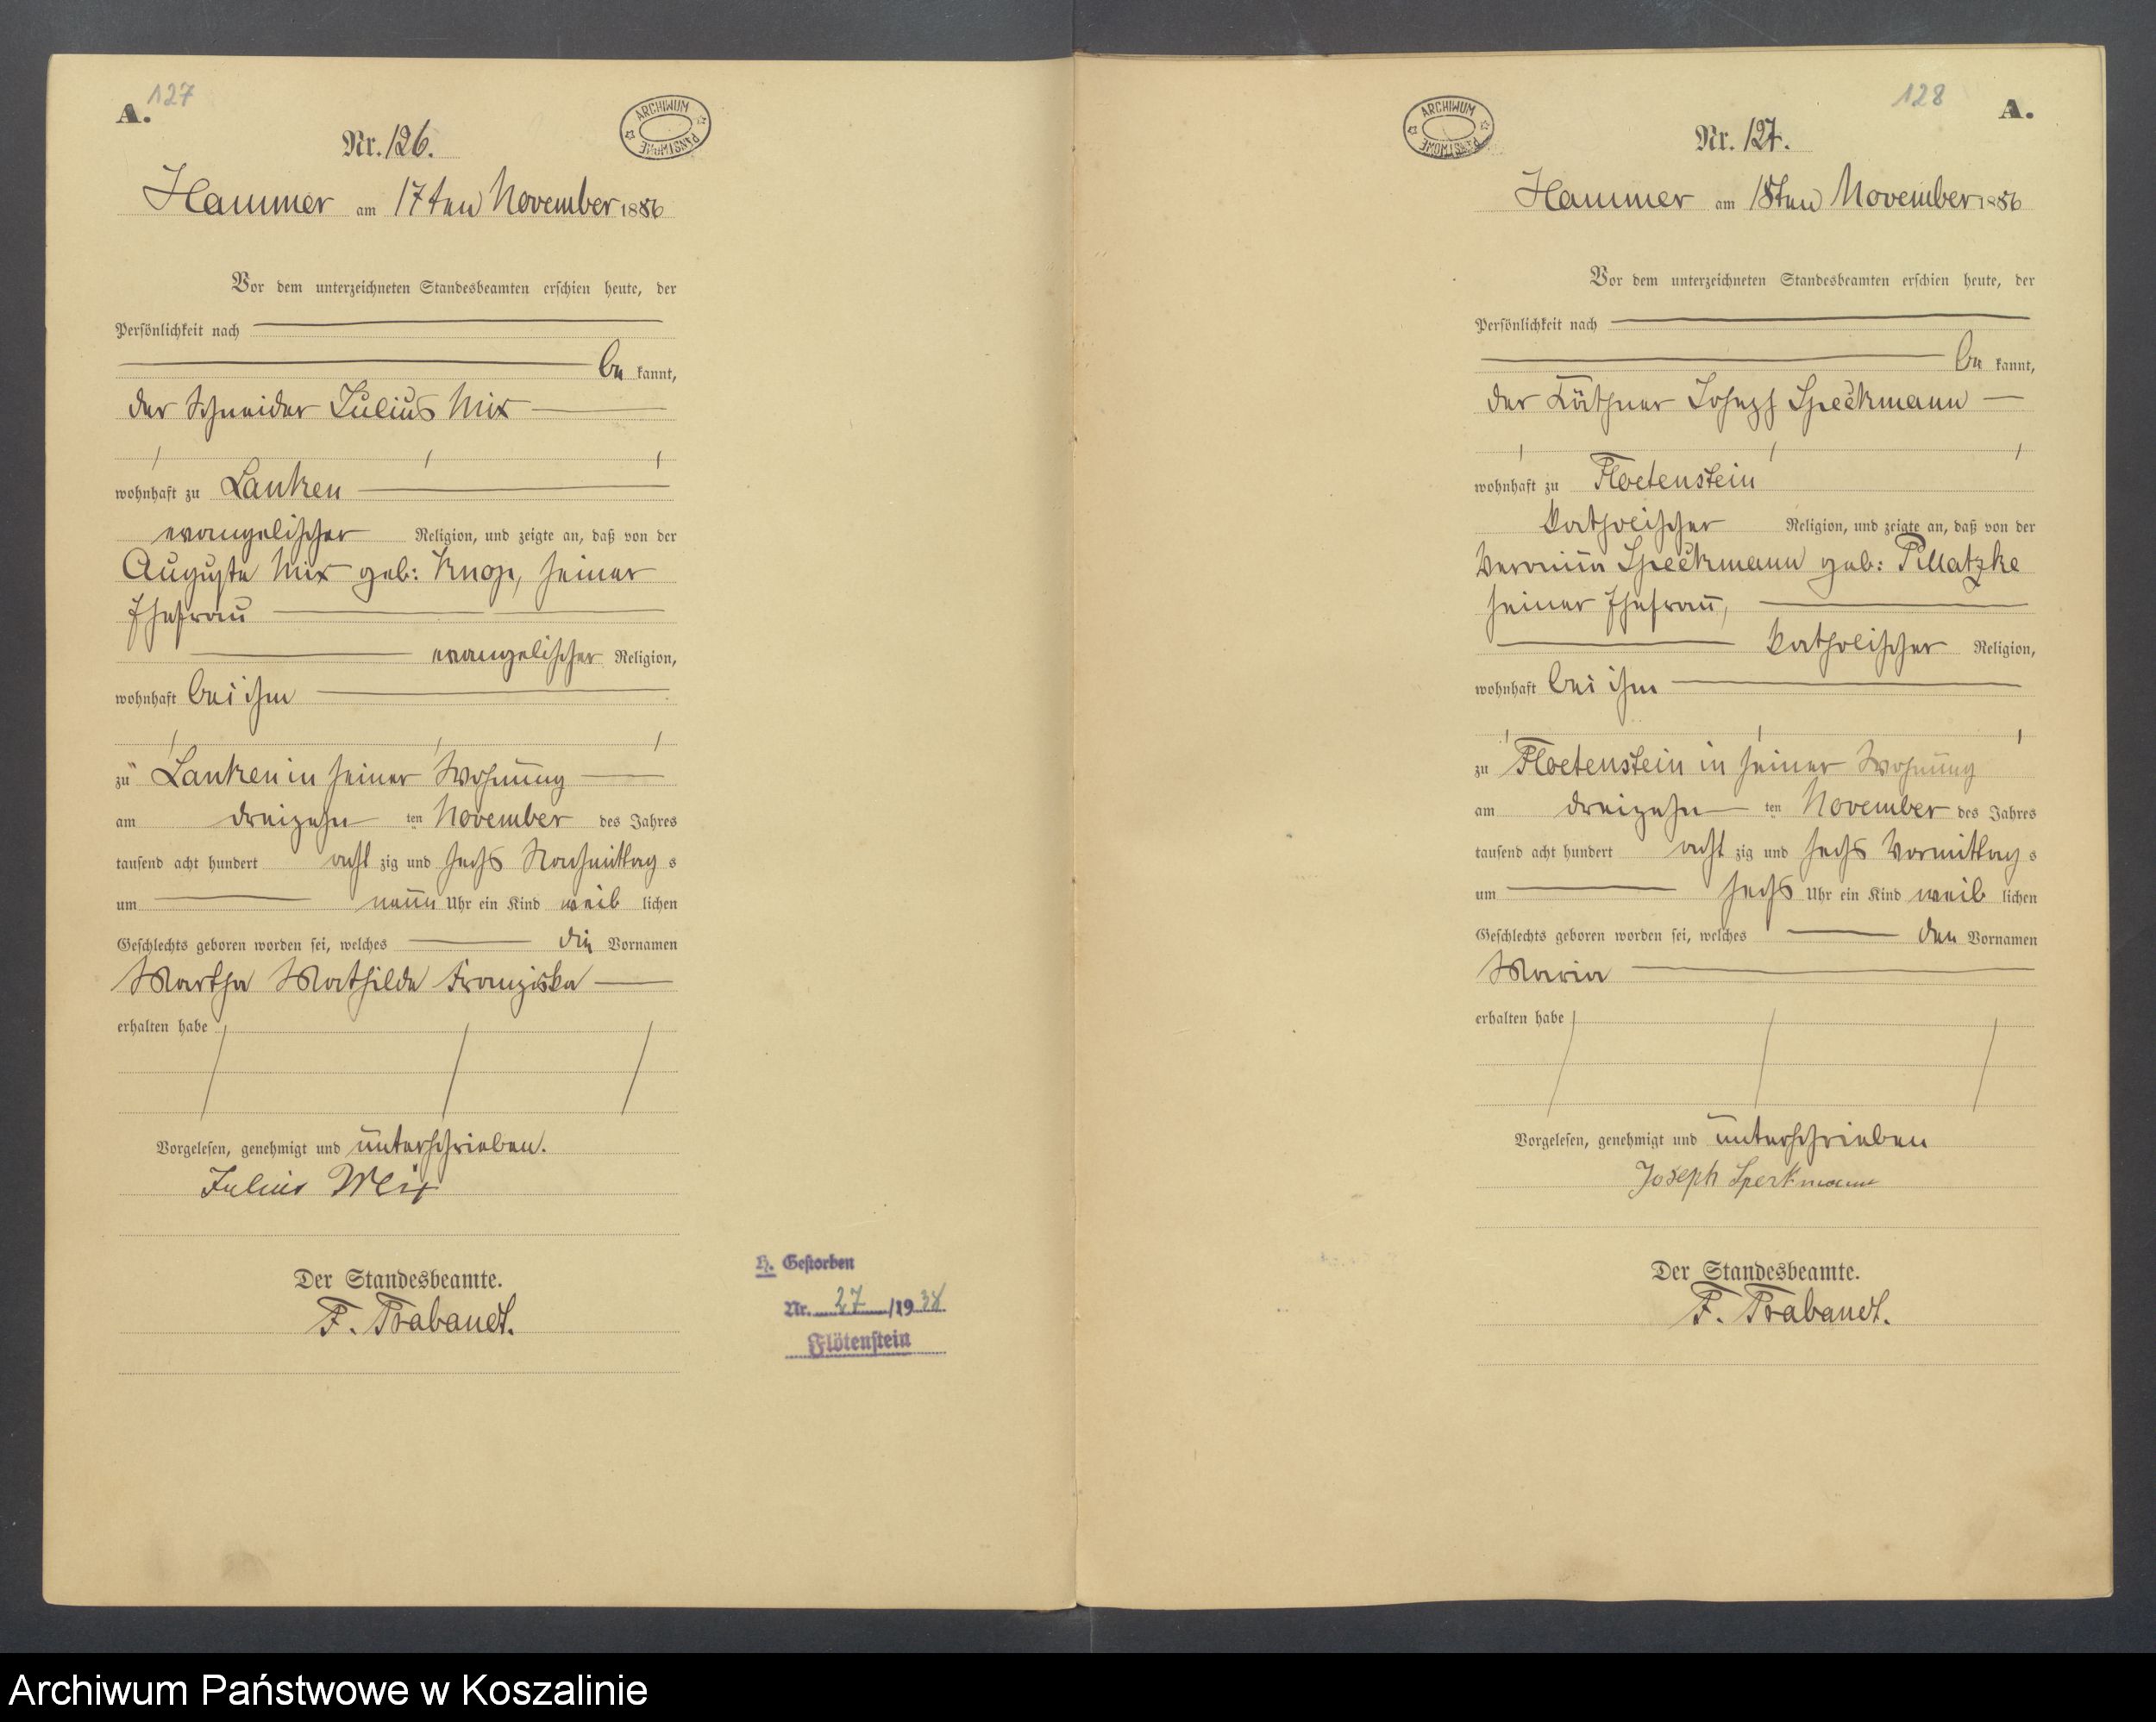 127
A.
ARCHIWUM PAŃSTWOWE
Nr. 126.
Hammer am 17ten November 1886
Vor dem unterzeichneten Standesbeamten erschien heute, der
Persönlichkeit nach
be kannt,
der Schneider Julius Mix
wohnhaft zu Lanken
evangelischer Religion, und zeigte an, daß von der
Auguste Mix geb: Knop, seiner
Ehefrau
evangelischer Religion,
wohnhaft bei ihm
zu Lanken in seiner Wohnung
am dreizehn ten November des Jahres
tausend acht hundert acht zig und sechs Nachmittag s
um neun Uhr ein Kind weib lichen
Geschlechts geboren worden sei, welches die Vornamen
Martha Mathilde Franziska
erhalten habe
Vorgelesen, genehmigt und unterschrieben.
Julius Mix
Der Standesbeamte.
F. Trabandt.
H. Gestorben
Nr. 27 /19 38
Flötenstein
128
A.
ARCHIWUM PAŃSTWOWE
Nr. 127.
Hammer am 18ten November 1886
Vor dem unterzeichneten Standesbeamten erschien heute, der
Persönlichkeit nach
be kannt,
der Käthner Joseph Speckmann
wohnhaft zu Floetenstein
katholischer Religion, und zeigte an, daß von der
Speckmann geb: Pillatzke
seiner Ehefrau,
katholischer Religion,
wohnhaft bei ihm
zu Floetenstein in seiner Wohnung
am dreizehn ten November des Jahres
tausend acht hundert acht zig und sechs Vormittag s
um sechs Uhr ein Kind weib lichen
Geschlechts geboren worden sei, welches den Vornamen
Maria
erhalten habe
Vorgelesen, genehmigt und unterschrieben
Joseph Speckmann
Der Standesbeamte.
F. Trabandt.
Archiwum Państwowe w Koszalinie